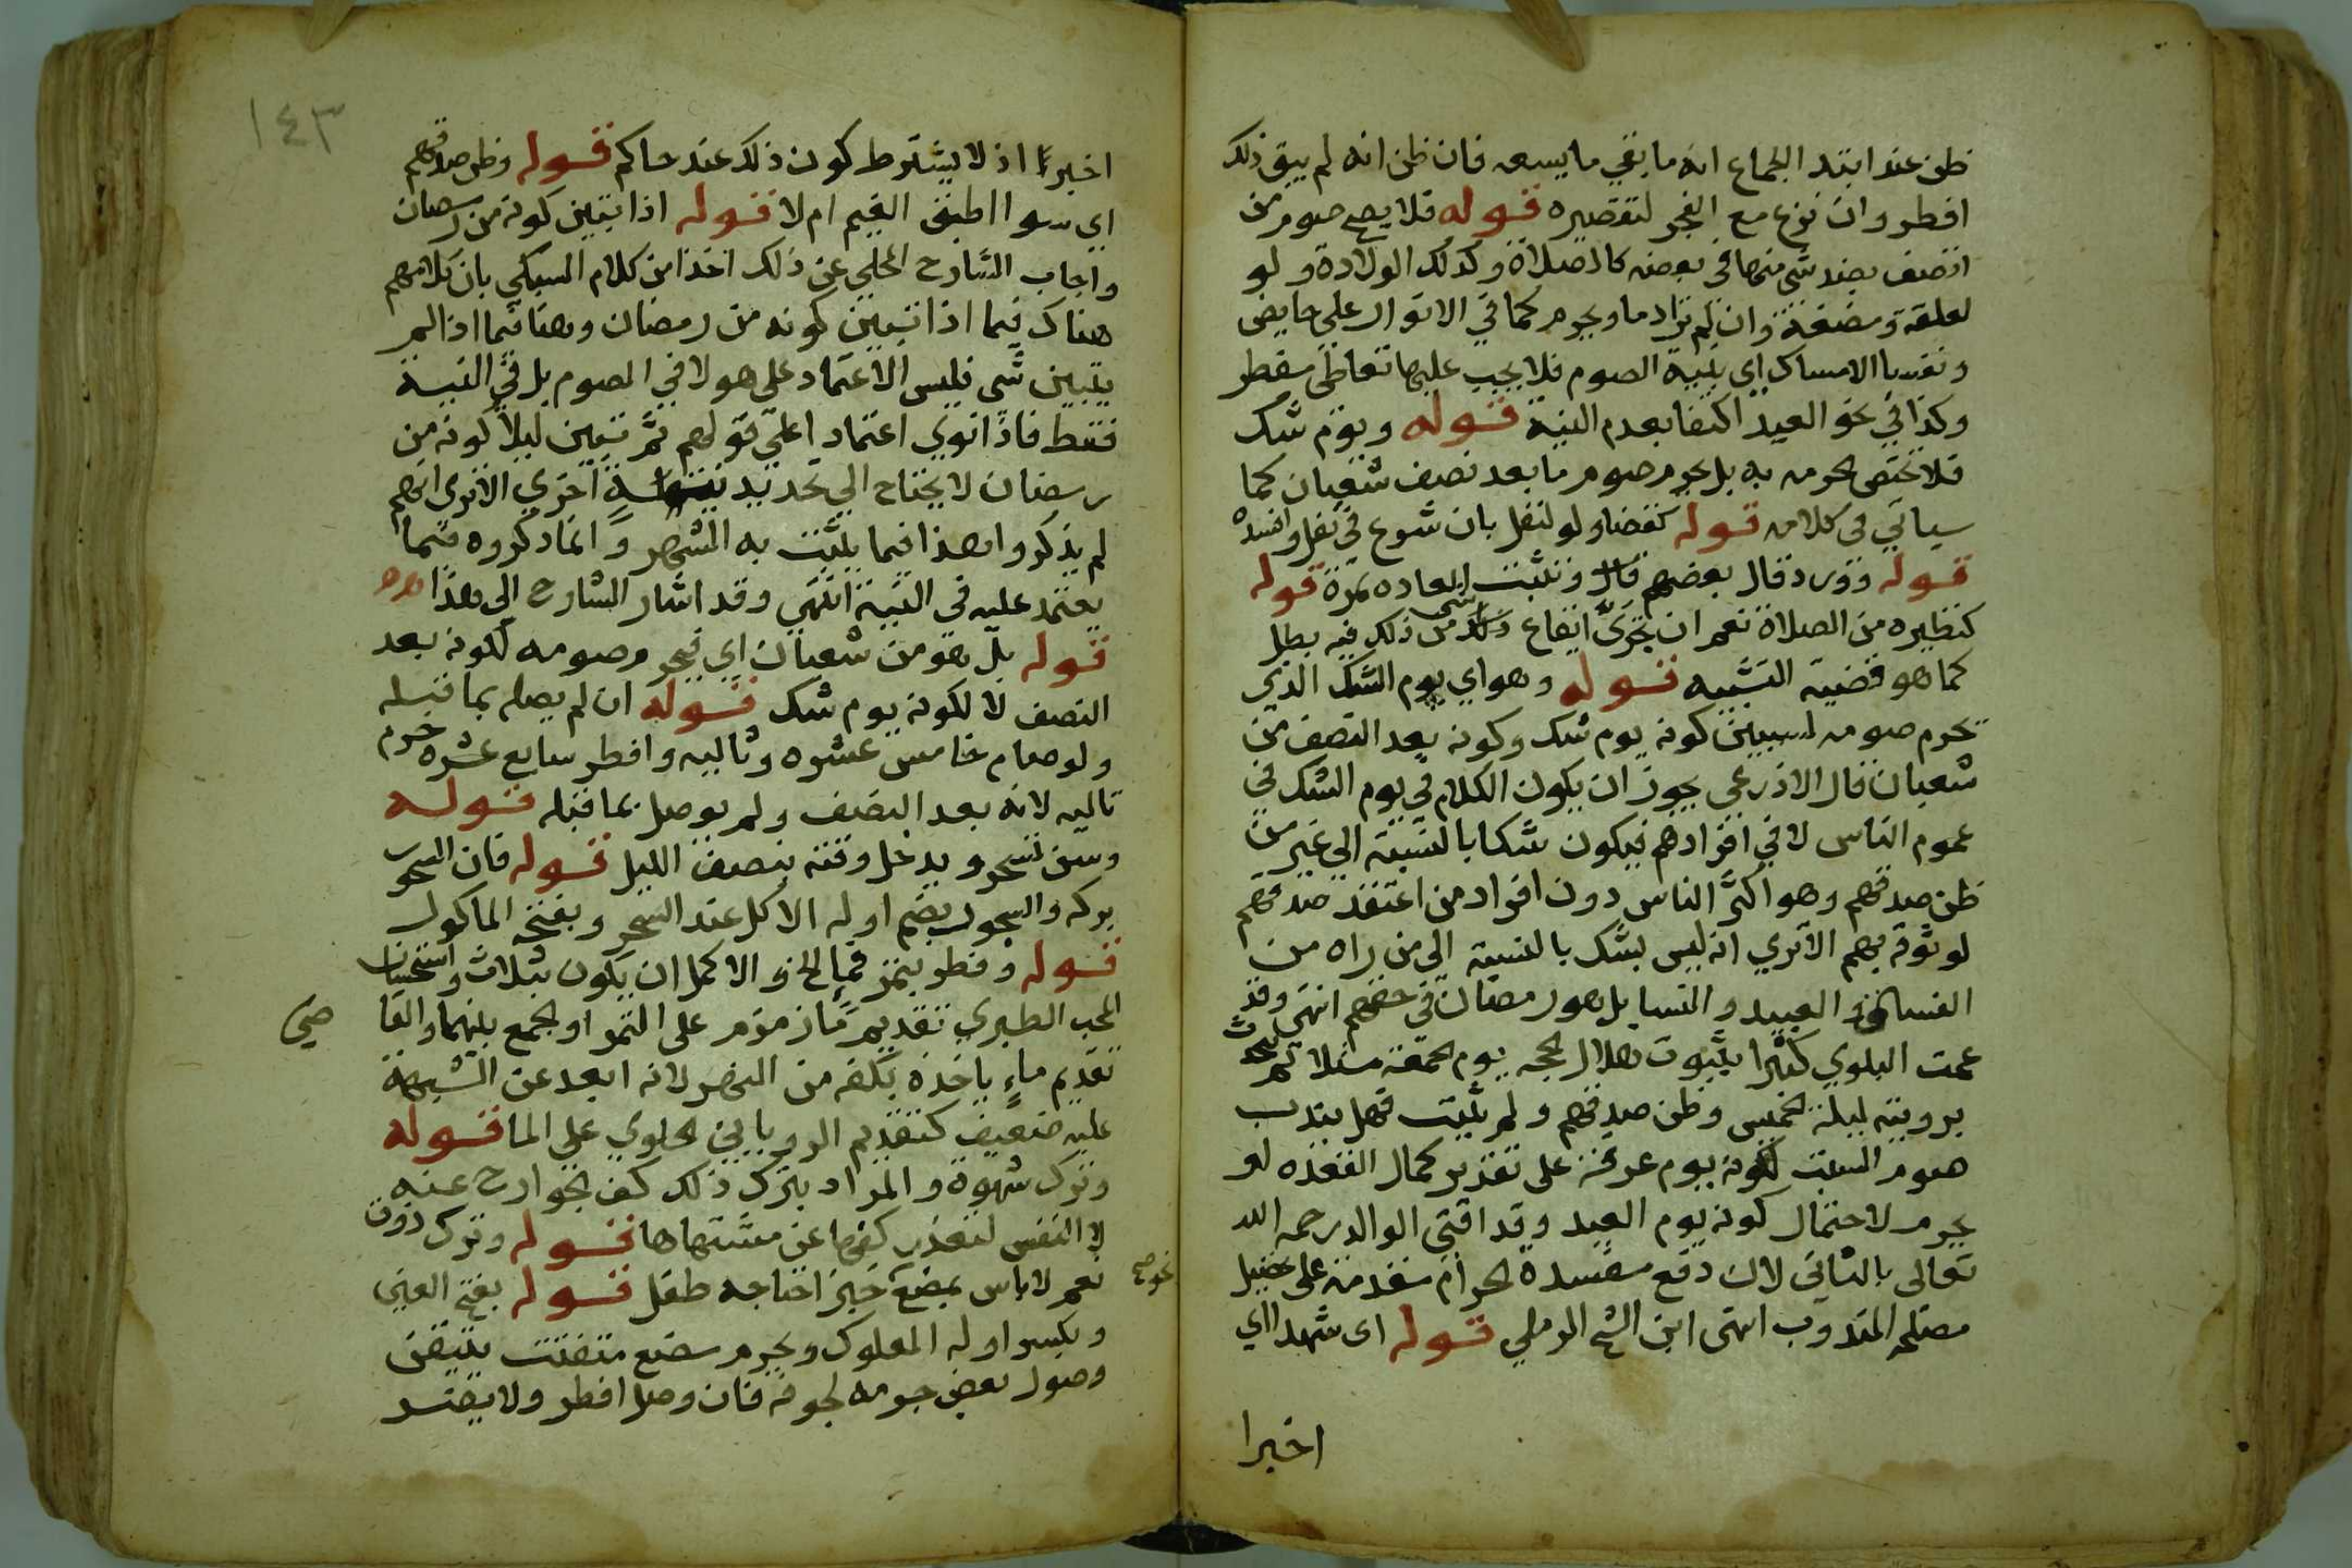 ظن عند ابتد الجماع انه ما بقي ما يسعه فان ظن انه لم يبق ذلك
افطر وان نزع مع الفجر لتقصيره قوله فلا يصح صوم من
اتصف بضد شي منها في بعضه كالصلاة وكذلك الولادة ولو
لعلقة ومضغة وان لم تر دما ويحرم كما في الانوار علي حايض
ونفسا الامساك اي بنية الصوم فلا يجب عليها تعاطي مفطر
وكذا في نحو العيد اكتفا بعدم النية قوله ويوم شك
فلا تختص الحرمه به بل يحرم صوم ما بعد نصف شعبان كما
سياتي في كلامه قوله كقضا ولو لنفل بان شرع في نفل وافسده
قوله وورد قال بعضهم قال وتثبت العاده بمرة قوله
كنظيره من الصلاة نعم ان تحري ايقاع ذلك من ذلك فيه بطل
كما هو قضية التشبيه قوله وهو اي يوم الشك الذي
يحرم صومه لسببين كونه يوم شك وكونه بعد النصف من
شعبان قال الاذرعي يجوز ان يكون الكلام في يوم الشك في
عموم الناس لا في افرادهم فيكون شكا بالنسبة الي غير من
ظن صدقهم وهو اكثر الناس دون افراد من اعتقد صدقهم
لوثوقه بهم الا تري انه ليس بشك بالنسبة الي من راه من
الفساق والعبيد والنسا بل هو رمضان في حقهم انتهي وقد
عمت البلوي كثيرا بثبوت هلال الحجه يوم الجمعة مثلا ثم يتحدث
برويته ليلة الخميس وظن صدقهم ولم يثبت فهل يندب
صوم السبت لكونه يوم عرفة علي تقدير كمال القعده او
يحرم لاحتمال كونه يوم العيد وقد افتي الوالد رحمه الله
تعالي بالثاني لان دفع مفسدة الحرام مقدمة علي تحصيل
مصلحة المندوب انتهى ابن الشيخ الرملي قوله اي شهدا اي
اخبرا
١٤٣
اخبرا اذ لا يشترط كون ذلك عند حاكم قوله وظن صدقهم
اي سوا اطبق الغيم ام لا قوله اذا تبين كونه من رمضان
واجاب الشارح المحلي عن ذلك اخذا من كلام السبكي بان كلامهم
هناك فيما اذا تبين كونه من رمضان وهنا فيما اذا لم
يتبين شي فليس الاعتماد علي هولا في الصوم بل في النية
فقط فاذا نوي اعتمادا علي قولهم ثم تبين ليلا كونه من
رمضان لا يحتاج الي تجديد نية اخري الا تري انهم
لم يذكروا هذا فيما يثبت به الشهر وانما ذكروه فيما
يعتمد عليه في النية انتهي وقد اشار الشارح الي هذا
قوله بل هو من شعبان اي فيحرم صومه لكونه بعد
النصف لا لكونه يوم شك قوله ان لم يصله بما قبله
ولو صام خامس عشره وتاليه وافطر سابع عشره حرم
تاليه لانه بعد النصف ولم يوصل بما قبله قوله
وسن تسحر ويدخل وقته بنصف الليل قوله فان السحور
بركه والسحور بضم اوله الاكل عند السحر وبفتحه الماكول
قوله وفطر بتمر فما الخ والاكمل ان يكون بثلاث واستحسان
المحب الطبري تقديم ما زمزم على التمر او الجمع بينهما والقا
ضي
تقديم ماء ياخذه بكفه من النهر لانه ابعد عن الشبهة
عليه ضعيف كتقديم الروياني الحلوي علي الما قوله
وترك شهوة والمراد بترك ذلك كف الجوارح عنه
لا النفس لتعذر كفها عن مشتهاها قوله وترك ذوق
نعم لا باس بمضغ خبز احتاجه طفل قوله بفتح العين
نحو صح
وبكسر اوله المعلوك ويحرم مضع متفتت يتيقن
وصول بعض جرمه لجوفه فان وصل افطر ولا يضر